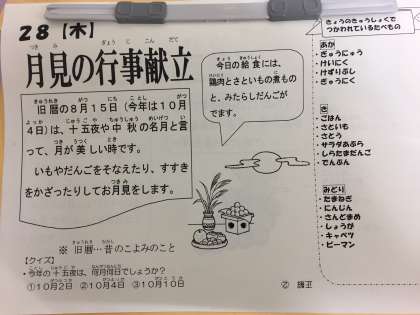 28【木】
月見の行事献立
旧暦の8月15日（今年は10月
4日）は、十五夜や中秋の名月と言
って、月が美しい時です。
いもやだんごをそなえたり、すすき
をかざったりしてお月見をします。
今日の給食には、
鶏肉とさといもの煮もの
と、みたらしだんごが
でます。
※ 旧暦…昔のこよみのこと
【クイズ】
・今年の十五夜は、何月何日でしょうか？
①10月2日 ②10月4日 ③10月10日
きょうのきゅうしょくで
つかわれているたべもの
あか
・ぎゅうにゅう
・けいにく
・けずりぶし
・ぎゅうにく
き
・ごはん
・さといも
・さとう
・サラダあぶら
・しらたまだんご
・でんぷん
みどり
・たまねぎ
・にんじん
・さんどまめ
・しょうが
・キャベツ
・ピーマン